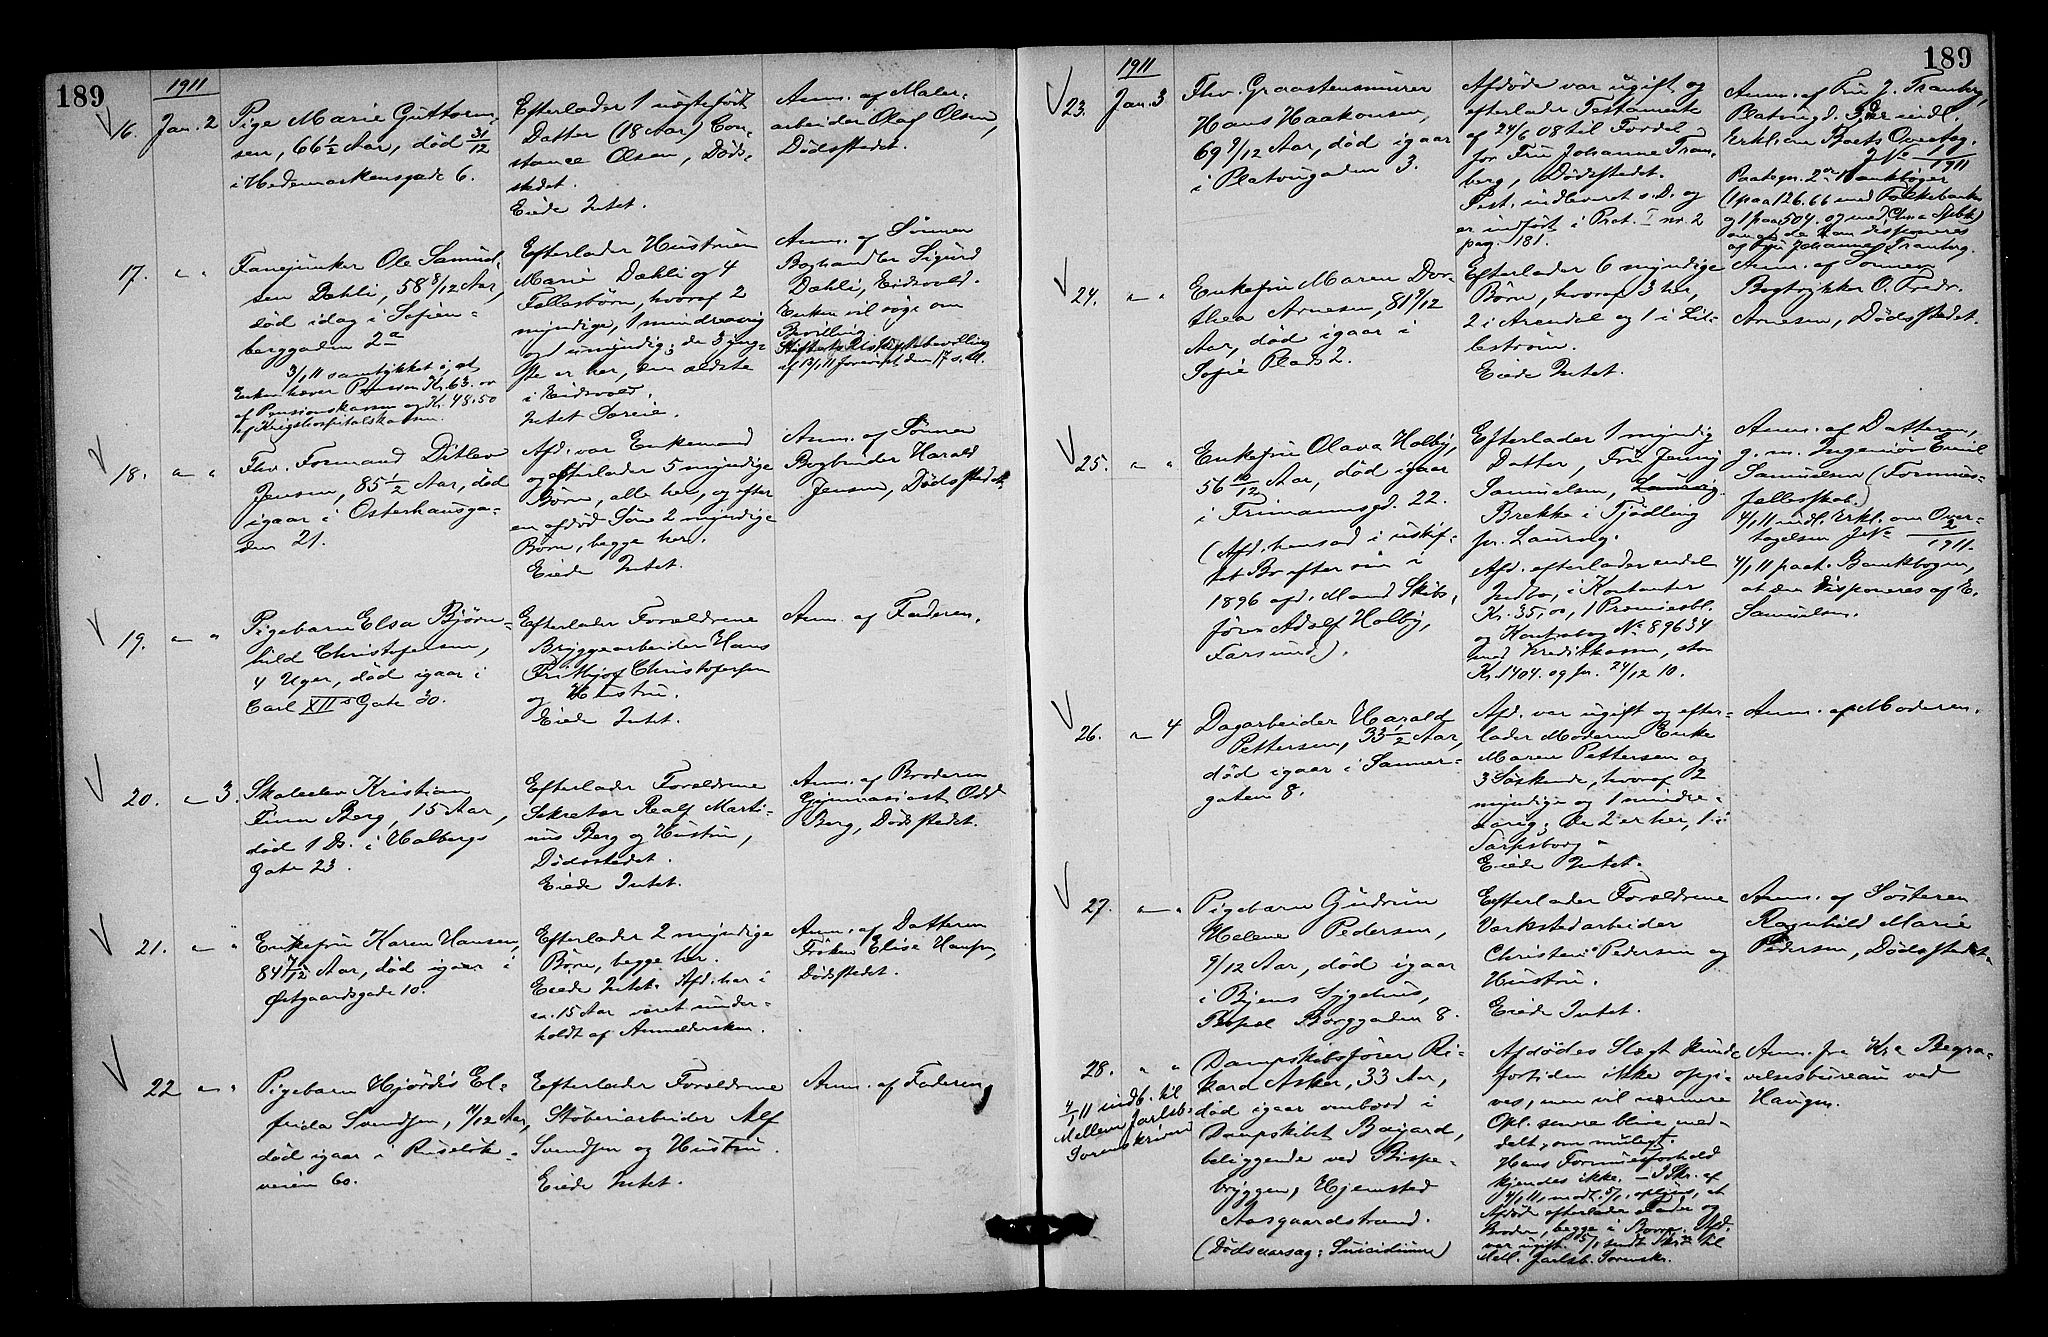 189
1911
16. Jan. 2
Pige Marie Guttorm-
sen, 66½ Aar, død 31/12
i Hedemarkensgade 6.
Efterlader 1 uægtefødt
Datter (18 Aar) Con-
stance Olsen, Døds-
stedet.
Eiede Intet.
Anm. af Maler-
arbeider Olaf Olsen,
Dødsstedet.
17. " "
Fanejunker Ole Samuel-
sen Dæhli, 58 8/12 Aar,
død idag i Sofien-
berggaden 2a
3/1 11 samtykket i, at
Enken hæver Pension Kr. 63.00
af Pensionskassen og Kr. 48.50
af Krigshospitalskassen.
Efterlader Hustruen
Marie Dæhli og 4
Fællesbørn, hvoraf 2
myndige, 1 mindreaarig
og 1 umyndig; de 3 yng-
ste er her, den ældste
i Eidsvold.
Intet Særeie.
Anm. af Sønnen
Boghandler Sigurd
Dæhli, Eidsvold.
Enken vil søge om
Bevilling.
af 13/1 11 forevist den 17 s. M.
18. " "
Fhv. Formand Ditlev
Jensen, 85½ Aar, død
igaar i Osterhausga-
den 21.
Afd. var Enkemand
og efterlader 5 myndige
Børn, alle her, og efter
en afdød Søn 2 myndige
Børn, begge her.
Eiede Intet.
Anm. af Sønnen
Bogbinder Harald
Jensen, Dødsstedet.
19. " "
Pigebarn Elsa Bjørn-
hild Christofersen,
4 Uger, død igaar i
Carl XIIs Gate 30.
Efterlader Forældrene
Bryggearbeider Hans
Frithjof Christofersen
og Hustru.
Eiede Intet.
Anm. af Faderen.
20. " 3.
Skoleelev Kristian
Finn Berg, 15 Aar,
død 1 ds. i Holbergs
Gate 23.
Efterlader Forældrene
Sekretær Realf Marti-
nus Berg og Hustru,
Dødsstedet.
Eiede Intet.
Anm. af Broderen
Gymnasiast Odd
Berg, Dødsstedet.
21. " "
Enkefru Karen Hansen,
84 7/12 Aar, død igaar i
Østgaardsgade 10.
Efterlader 2 myndige
Børn, begge her.
Eiede Intet. Afd. har i
ca. 15 Aar været under-
holdt af Anmeldersken.
Anm. af Datteren
Frøken Elise Hansen,
Dødsstedet.
22 " "
Pigebarn Hjørdis El-
frida Svendsen, 11/12 Aar,
død igaar i Ruseløk-
veien 60.
Efterlader Forældrene
Støberiarbeider Alf
Svendsen og Hustru.
Eiede Intet.
Anm. af Faderen
189
1911
23. Jan. 3
Fhv. Graastensmurer
Hans Haakonsen,
69 9/12 Aar, død igaar
i Platousgaden 3.
Afdøde var ugift og
efterlader Testamente
af 24/6 08 til Fordel
for Fru Johanne Tran-
berg, Dødsstedet.
Test. indleveret s. D. og
er indført i Prot. I nr. 2
pag. 181.
Anm. af Fru J. Tranberg,
Platousgd. 3, indl.
Erkl. om Boets Overtag.
J No 1/1911
Paategn. 2 Bankbøger
(1 paa 126.66 med Folkebanken
og 1 paa 504. og med Chra Spbk)
om at de kan disponeres
af Fru Johanne Tranberg.
24. " "
Enkefru Maren Dor-
thea Arnesen, 81 9/12
Aar, død igaar i
Sofie Plads 2.
Efterlader 6 myndige
Børn, hvoraf 3 her,
2 i Arendal og 1 i Lil-
lestrøm.
Eiede Intet.
Anm. af Sønnen
Bogtrykker O. Fredr.
Arnesen, Dødsstedet.
25. " "
Enkefru Olava Holby,
56 10/12 Aar, død igaar
i Frimannsgd. 22.
(Afd. hensad i uskif-
tet Bo efter sin i
1896 afd. Mand Skibs-
fører Adolf Holby,
Farsund).
Efterlader 1 myndig
Datter, Fru Jenny
Samuelsen,
Brekke i Tjødling
pr. Laurvig.
Afd. efterlader endel
Indbo, i Kontanter
Kr. 35,00, 1 Premieobl.
og Kontrabog No 89634
med Kreditkassen, stor
Kr. 1404. og pr. 24/12 10.
Anm. af Datteren,
g. m. Ingeniør Emil
Samuelsen (Formues-
fællesskab.)
4/1 11 indl. Erkl. om Over-
tagelsen J No 2/1911.
4/1 11 paat. Bankbogen,
at den disponeres af E.
Samuelsen.
26. " 4
Dagarbeider Harald
Pettersen, 33½ Aar,
død igaar i Sanner-
gaten 8.
Afd. var ugift og efter-
lader Moderen Enke
Maren Pettersen og
3 Søskende, hvoraf 2
myndige og 1 mindre-
aarig; de 2 er her, 1 i
Sarpsborg.
Eiede Intet.
Anm. af Moderen.
27. " "
Pigebarn Gudrun
Helene Pedersen,
9/12 Aar, død igaar
i Byens Sygehus,
Bopæl Borggaden 8.
Efterlader Forældrene
Værkstedarbeider
Christen Pedersen og
Hustru.
Eiede Intet.
Anm. af Søsteren
Ragnhild Marie
Pedersen, Dødsstedet.
28. " "
4/1 11 indb. til
Mellem Jarlsb.
Sorenskriveri
Dampskibsfører Ri-
kard Asker, 33 Aar,
død igaar ombord i
Dampskibet Bayard,
beliggende ved Bispe-
bryggen, Hjemsted
Aasgaardstrand.
(Dødsaarsag: Suicidium)
Afdødes Slægt kunde
fortiden ikke opgi-
ves, men vil nærmere
Opl. senere blive med-
delt, om muligt.
Hans Formuesforhold
kjendes ikke. — I Skr. af
4/1 11, modt. 5/1, oplyses, at
Afdøde efterlader Fader og
Broder, begge i Borre. Afd.
var ugift. 5/1 sendt Skr. til
Mell. Jarlsb. Sorenskr.
Anm. fra Kra Begra-
velsesbureau ved
Haugen.